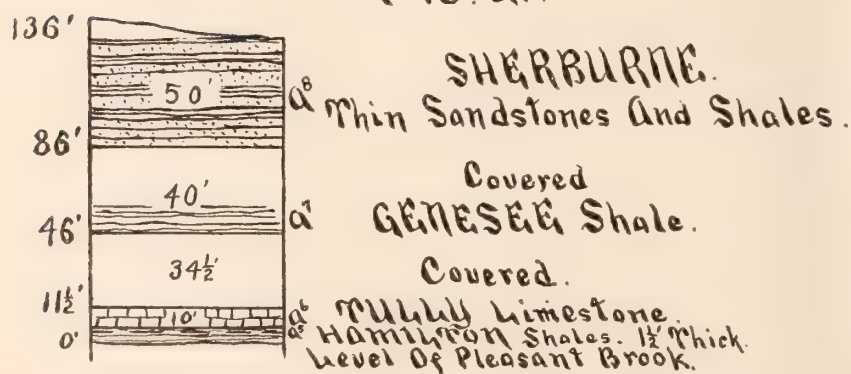 136'
SHERBURNE.
50' a⁸ Thin Sandstones And Shales.
86'
Covered
40'
46' a⁷ GENESEE Shale.
34½' Covered.
11½'
10' a⁶ TULLY Limestone.
0' a⁵ HAMILTON Shales. 1½' Thick.
Level Of Pleasant Brook.